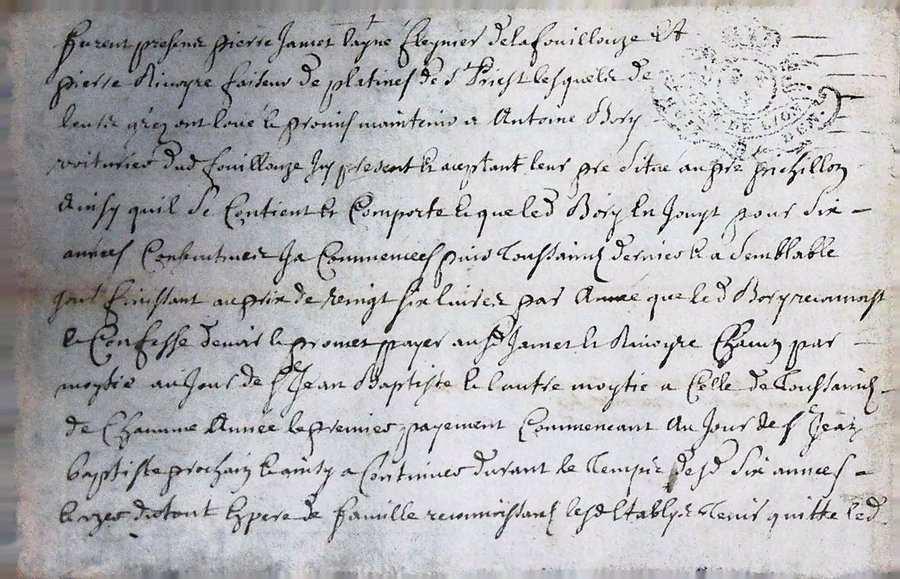 furent presens pierre Jamet layné Eleynier delafouillouze Et
pierre Rivoyre faiseur de platines de St Priest lesquels de
leurs grez ont loué et promis maintenir a Antoine Bory
voiturier dud fouillouze Icy present et aceptant leur pré situé au pré
Ainsy quil se Contient et Comporte lequel led Bory En Jouyt pour six
années Consecutives Ja Commencees puis Toussaincts dernier et a semblable
Jour finissant au prix de vingt six livres par Année que led Bory reconnoist
et Confesse devoir et promet payer ausd Jamet et Rivoyre Chacun par
moytie au Jour de St Jean Baptiste et lautre moytie a Celle de Toussaincts
de Chacune Année le premier payement Commencant Au Jour de St Jean
baptiste prochain et ainsy a Continuer durant le Temps desd six annees
et pere de famille reconnoissants lesd Tenir quitte led
DE LION
GEN